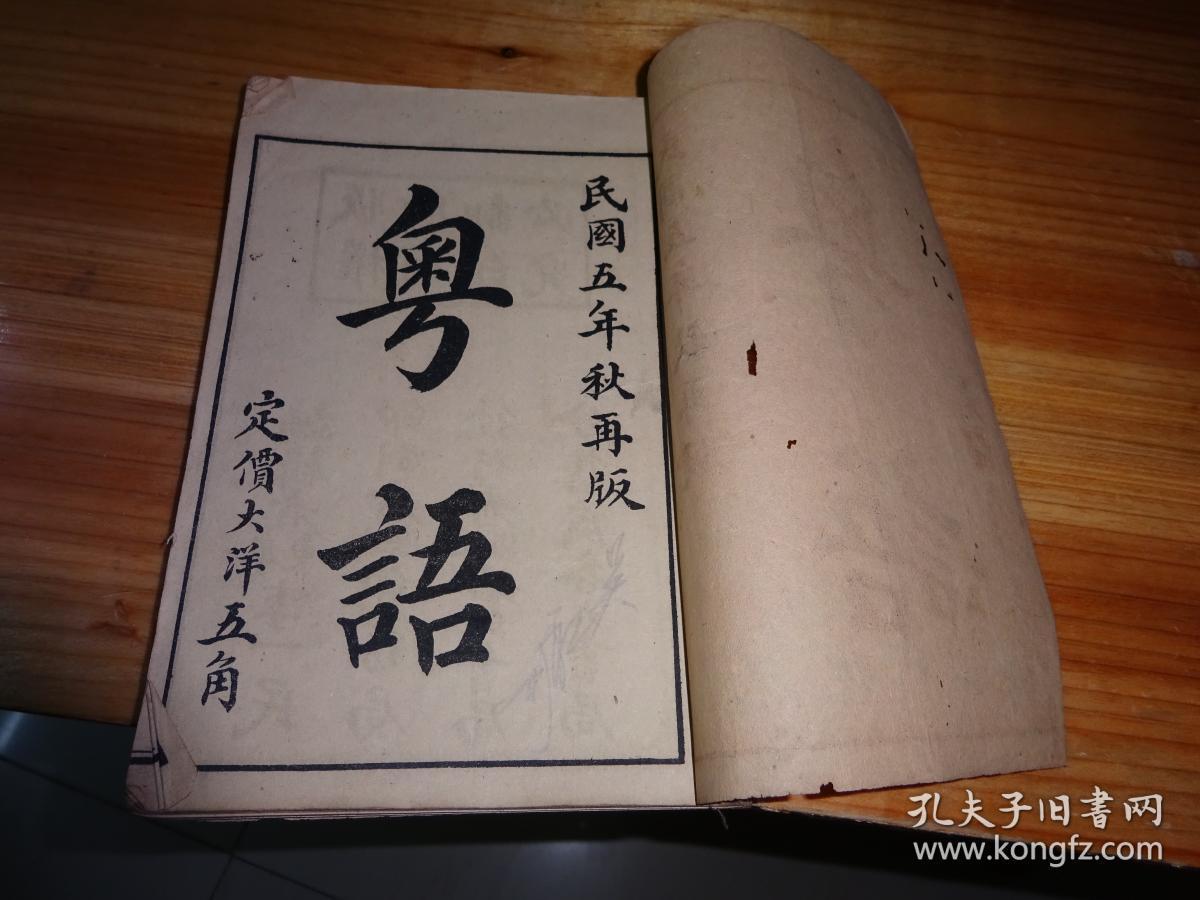 民國五年秋再版
粤語
定價大洋五角
孔夫子旧书网
www.kongfz.com